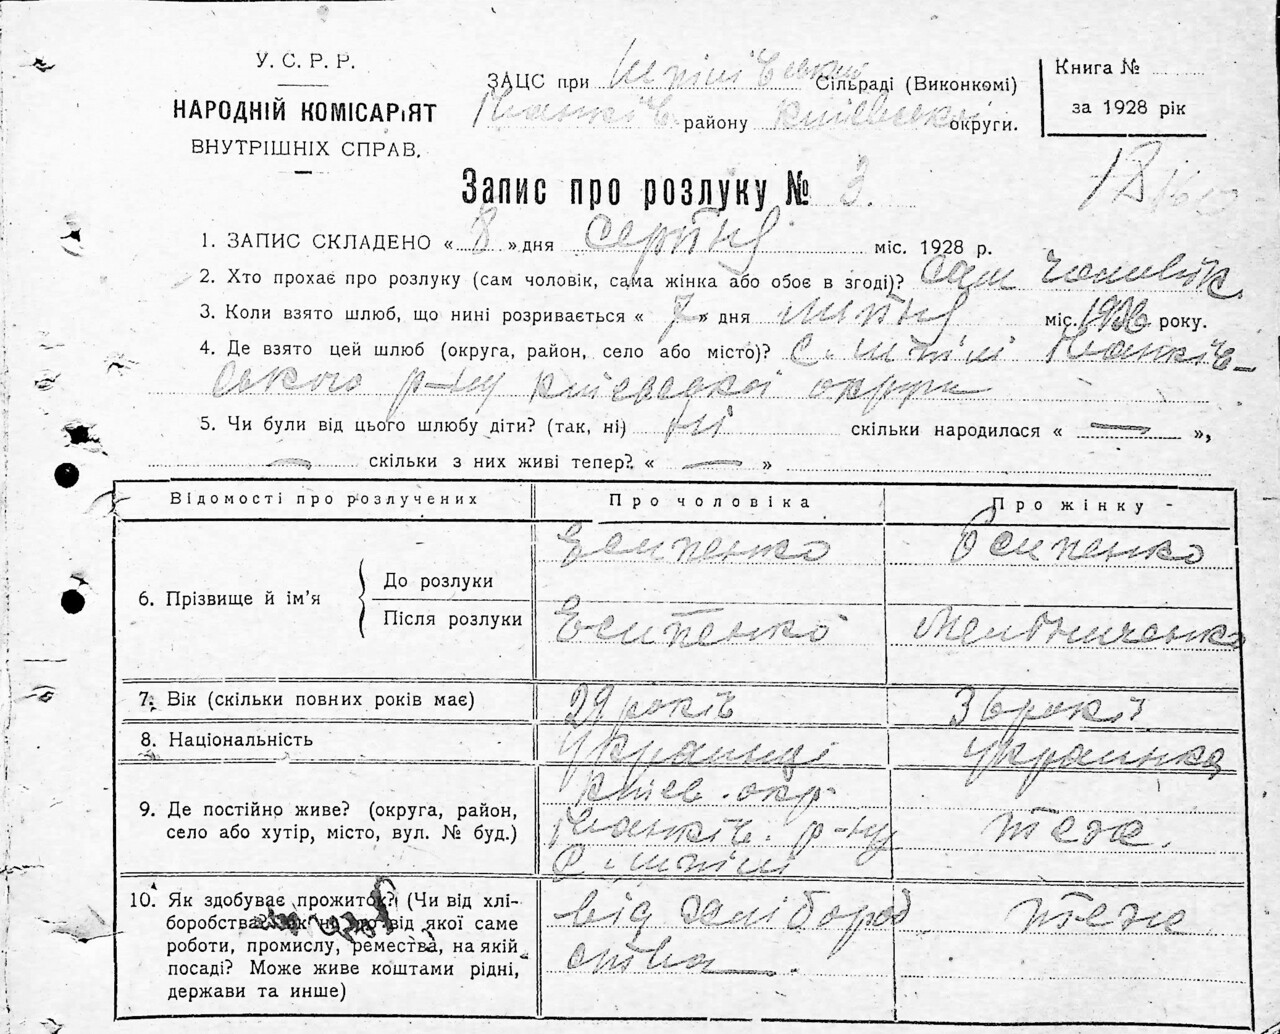 У. С. Р. Р.
НАРОДНІЙ КОМІСАРіЯТ
ВНУТРІШНІХ СПРАВ.
ЗАЦС при Шпилівській Сільраді (Виконкомі)
Іванків. району Київської округи.
Книга №
за 1928 рік
Запис про розлуку № 3.
1. ЗАПИС СКЛАДЕНО « 8 » дня серпня міс. 1928 р.
2. Хто прохає про розлуку (сам чоловік, сама жінка або обоє в згоді)? Сам чоловік
3. Коли взято шлюб, що нині розривається « 7 » дня липня міс. 1926 року.
4. Де взято цей шлюб (округа, район, село або місто)? с. Шпилі Іванків-
ського р-ну Київської округи
5. Чи були від цього шлюбу діти? (так, ні) ні скільки народилося « — »,
— скільки з них живі тепер? « — »
Відомості про розлучених
Про чоловіка
Про жінку
6. Прізвище й ім'я
До розлуки
Есипенко
Есипенко
Після розлуки
Есипенко
Мельниченко
7. Вік (скільки повних років має)
29 років
36 років
8. Національність
українці
украинка
9. Де постійно живе? (округа, район,
село або хутір, місто, вул. № буд.)
Київ. окр.
Іванків. р-ну
с. Шпилі
теж.
10. Як здобуває прожиток? (Чи від хлі-
боробства, як ні, то від якої саме
роботи, промислу, ремества, на якій
посаді? Може живе коштами рідні,
держави та инше)
від хліборобства.
теж